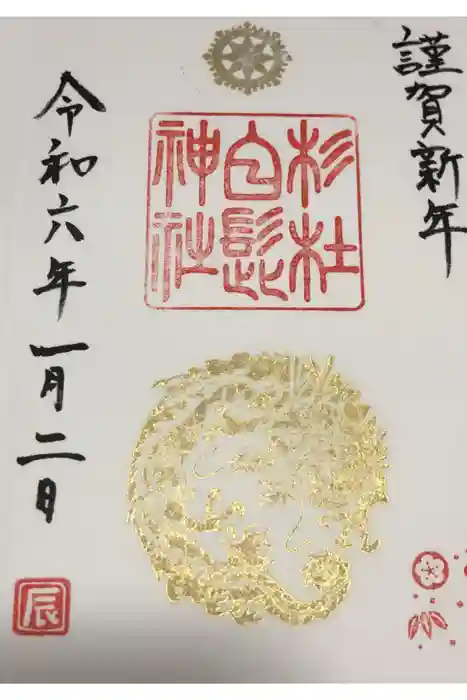 謹賀新年
杉杜
白髭
神社
令和六年一月二日
辰